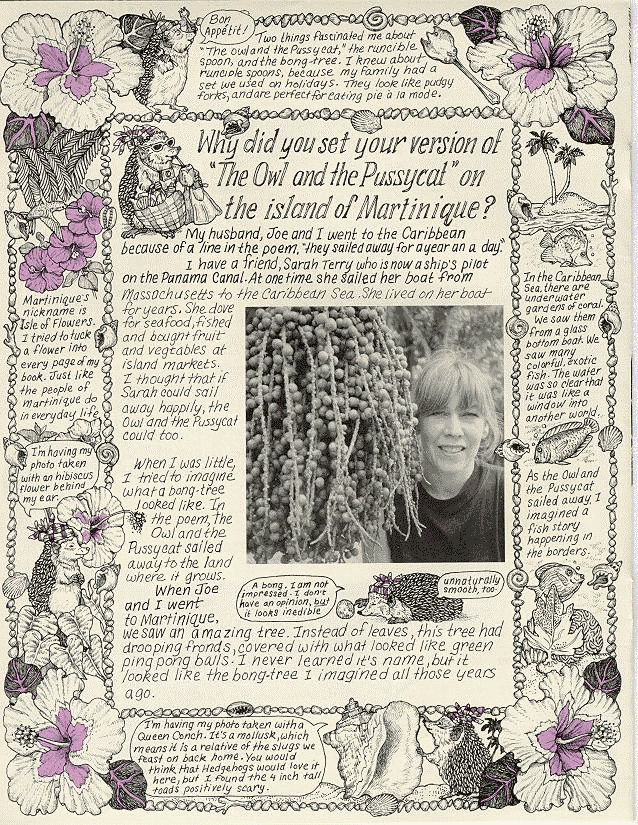 Bon
Appétit!
Two things fascinated me about
"The owl and the Pussycat," the runcible
spoon, and the bong-tree. I knew about
runciple spoons, because my family had a
set we used on holidays. They look like pudgy
forks, and are perfect for eating pie à la mode.
Why did you set your version of
"The Owl and the Pussycat" on
the island of Martinique?
My husband, Joe and I went to the Caribbean
because of a line in the poem, "they sailed away for a year an a day."
I have a friend, Sarah Terry who is now a ship's pilot
on the Panama Canal. At one time she sailed her boat from
Massachusetts to the Caribbean Sea. She lived on her boat
for years. She dove
for seafood, fished
and bought fruit
and vegtables at
island markets.
I thought that if
Sarah could sail
away happily, the
Owl and the Pussycat
could too.
When I was little,
I tried to imagine
what a bong-tree
looked like. In
the poem, the
Owl and the
Pussycat sailed
away to the land
where it grows.
When Joe
and I went
to Martinique,
we saw an amazing tree. Instead of leaves, this tree had
drooping fronds, covered with what looked like green
ping pong balls. I never learned it's name, but it
looked like the bong-tree I imagined all those years
ago.
Martinique's
nickname is
Isle of Flowers.
I tried to tuck
a flower into
every page of my
book. Just like
the people of
Martinique do
in everyday life.
I'm having my
photo taken
with an hibiscus
flower behind
my ear.
In the Caribbean
Sea, there are
underwater
gardens of coral.
We saw them
from a glass
bottom boat. We
saw many
colorful, exotic
fish. The water
was so clear that
it was like a
window into
another world.
As the Owl and
the Pussycat
sailed away, I
imagined a
fish story
happening in
the borders.
A bong. I am not
impressed. I don't
have an opinion, but
it looks inedible
unnaturally
smooth, too.
I'm having my photo taken with a
Queen Conch. It's a mollusk, which
means it is a relative of the slugs we
feast on back home. You would
think, that Hedgehogs would love it
here, but I found the 4 inch tall
toads positively scary.